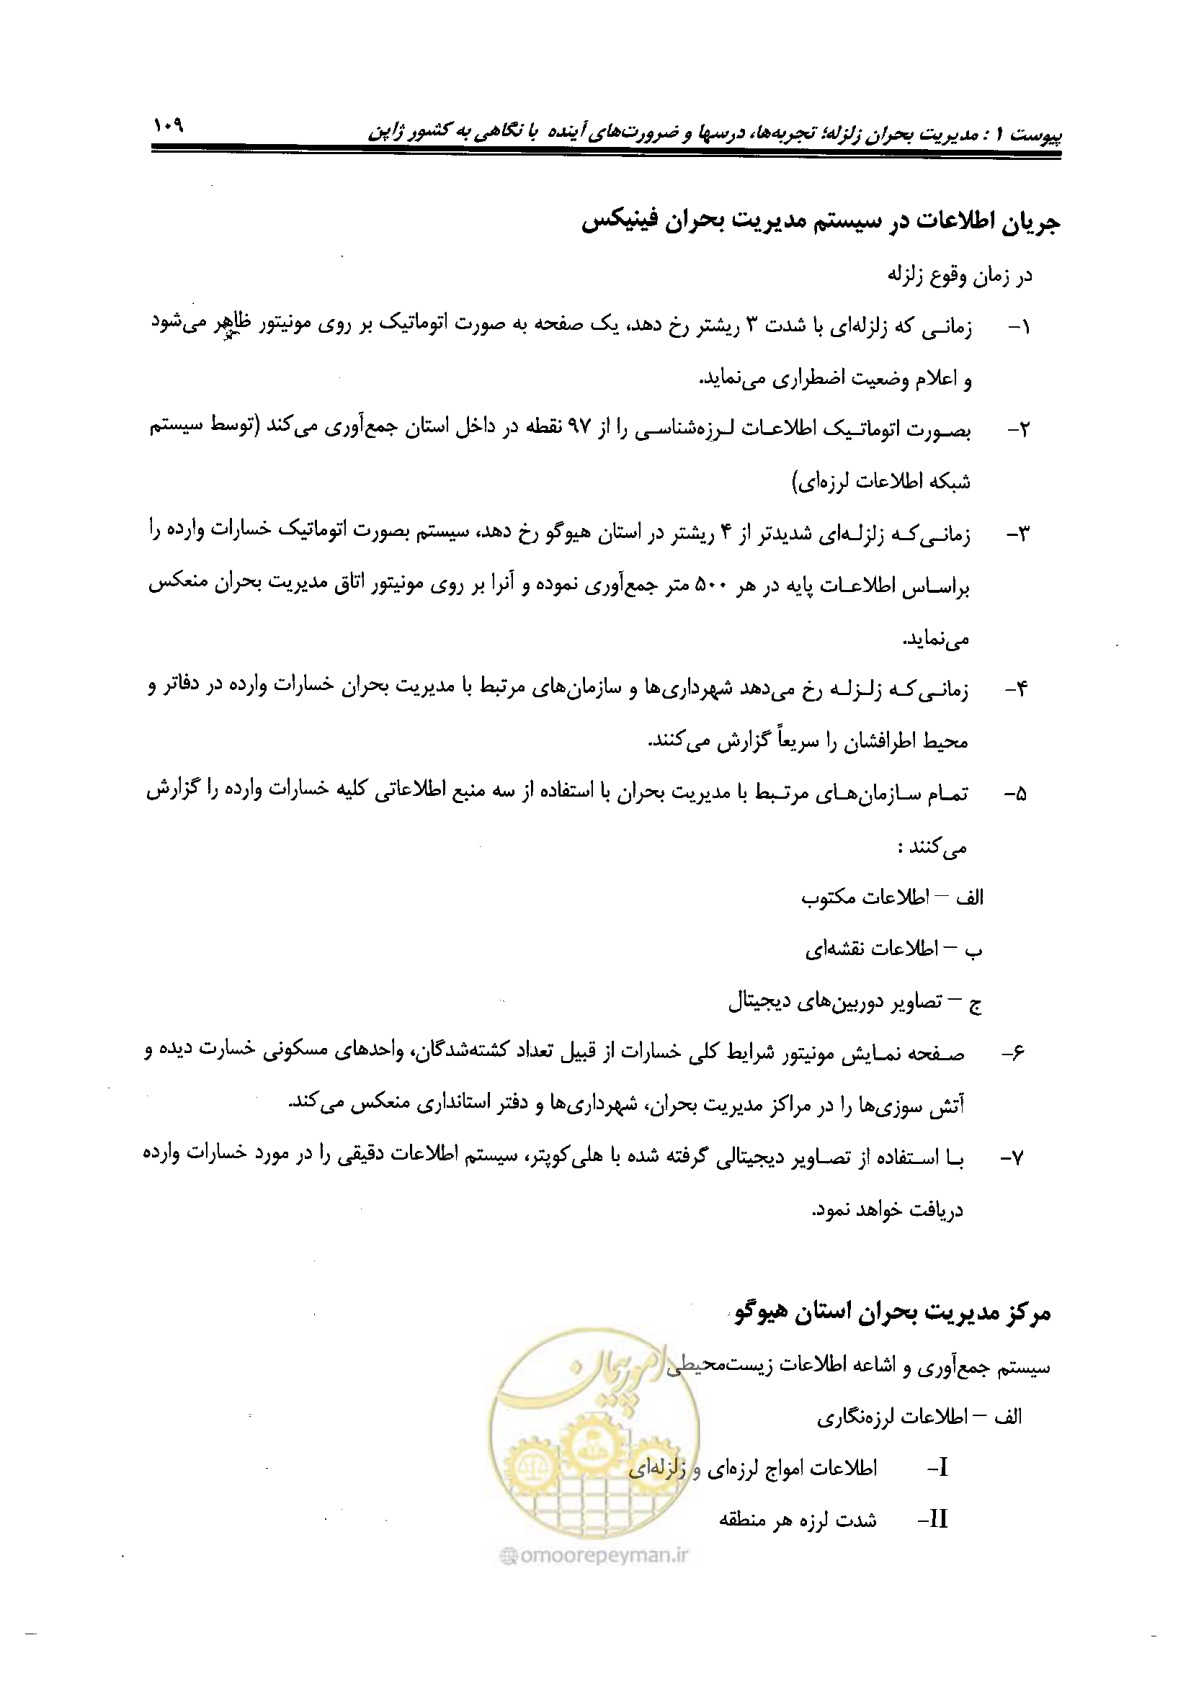 پیوست ۱ : مدیریت بحران زلزله؛ تجربه‌ها، درسها و ضرورت‌های آینده با نگاهی به کشور ژاپن ۱۰۹
جریان اطلاعات در سیستم مدیریت بحران فینیکس
در زمان وقوع زلزله
۱- زمانی که زلزله‌ای با شدت ۳ ریشتر رخ دهد، یک صفحه به صورت اتوماتیک بر روی مونیتور ظاهر می‌شود
و اعلام وضعیت اضطراری می‌نماید.
۲- بصورت اتوماتیک اطلاعات لرزه‌شناسی را از ۹۷ نقطه در داخل استان جمع‌آوری می‌کند (توسط سیستم
شبکه اطلاعات لرزه‌ای)
۳- زمانی‌که زلزله‌ای شدیدتر از ۴ ریشتر در استان هیوگو رخ دهد، سیستم بصورت اتوماتیک خسارات وارده را
براساس اطلاعات پایه در هر ۵۰۰ متر جمع‌آوری نموده و آنرا بر روی مونیتور اتاق مدیریت بحران منعکس
می‌نماید.
۴- زمانی‌که زلزله رخ می‌دهد شهرداری‌ها و سازمان‌های مرتبط با مدیریت بحران خسارات وارده در دفاتر و
محیط اطرافشان را سریعاً گزارش می‌کنند.
۵- تمام سازمان‌های مرتبط با مدیریت بحران با استفاده از سه منبع اطلاعاتی کلیه خسارات وارده را گزارش
می‌کنند :
الف – اطلاعات مکتوب
ب – اطلاعات نقشه‌ای
ج – تصاویر دوربین‌های دیجیتال
۶- صفحه نمایش مونیتور شرایط کلی خسارات از قبیل تعداد کشته‌شدگان، واحدهای مسکونی خسارت دیده و
آتش سوزی‌ها را در مراکز مدیریت بحران، شهرداری‌ها و دفتر استانداری منعکس می‌کند.
۷- با استفاده از تصاویر دیجیتالی گرفته شده با هلی‌کوپتر، سیستم اطلاعات دقیقی را در مورد خسارات وارده
دریافت خواهد نمود.
مرکز مدیریت بحران استان هیوگو
سیستم جمع‌آوری و اشاعه اطلاعات زیست‌محیطی
الف – اطلاعات لرزه‌نگاری
I- اطلاعات امواج لرزه‌ای و زلزله‌ای
II- شدت لرزه هر منطقه
امور پیمان
@omoorepeyman.ir